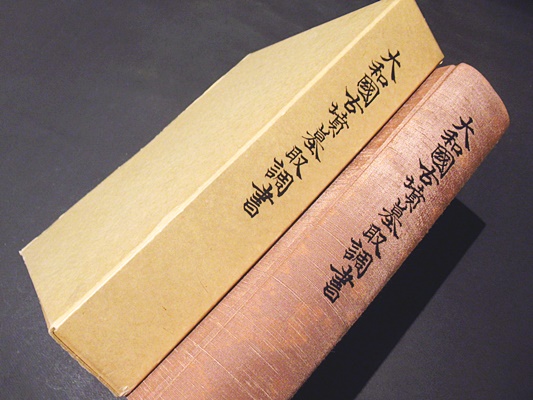 大和國古墳墓取調書
大和國古墳墓取調書